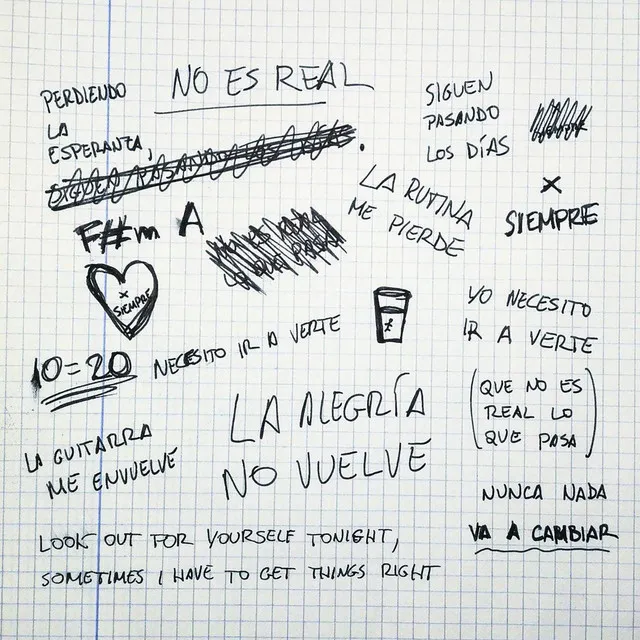 NO ES REAL
PERDIENDO
LA
ESPERANZA,
SIGUEN PASANDO LOS DÍAS.
SIGUEN
PASANDO
LOS DÍAS
X
SIEMPRE
LA RUTINA
ME PIERDE
F#m A
X
SIEMPRE
10=20
NECESITO IR A VERTE
YO NECESITO
IR A VERTE
(QUE NO ES
REAL LO
QUE PASA)
LA ALEGRÍA
NO VUELVE
LA GUITARRA
ME ENVUELVE
NUNCA NADA
VA A CAMBIAR
LOOK OUT FOR YOURSELF TONIGHT,
SOMETIMES I HAVE TO GET THINGS RIGHT